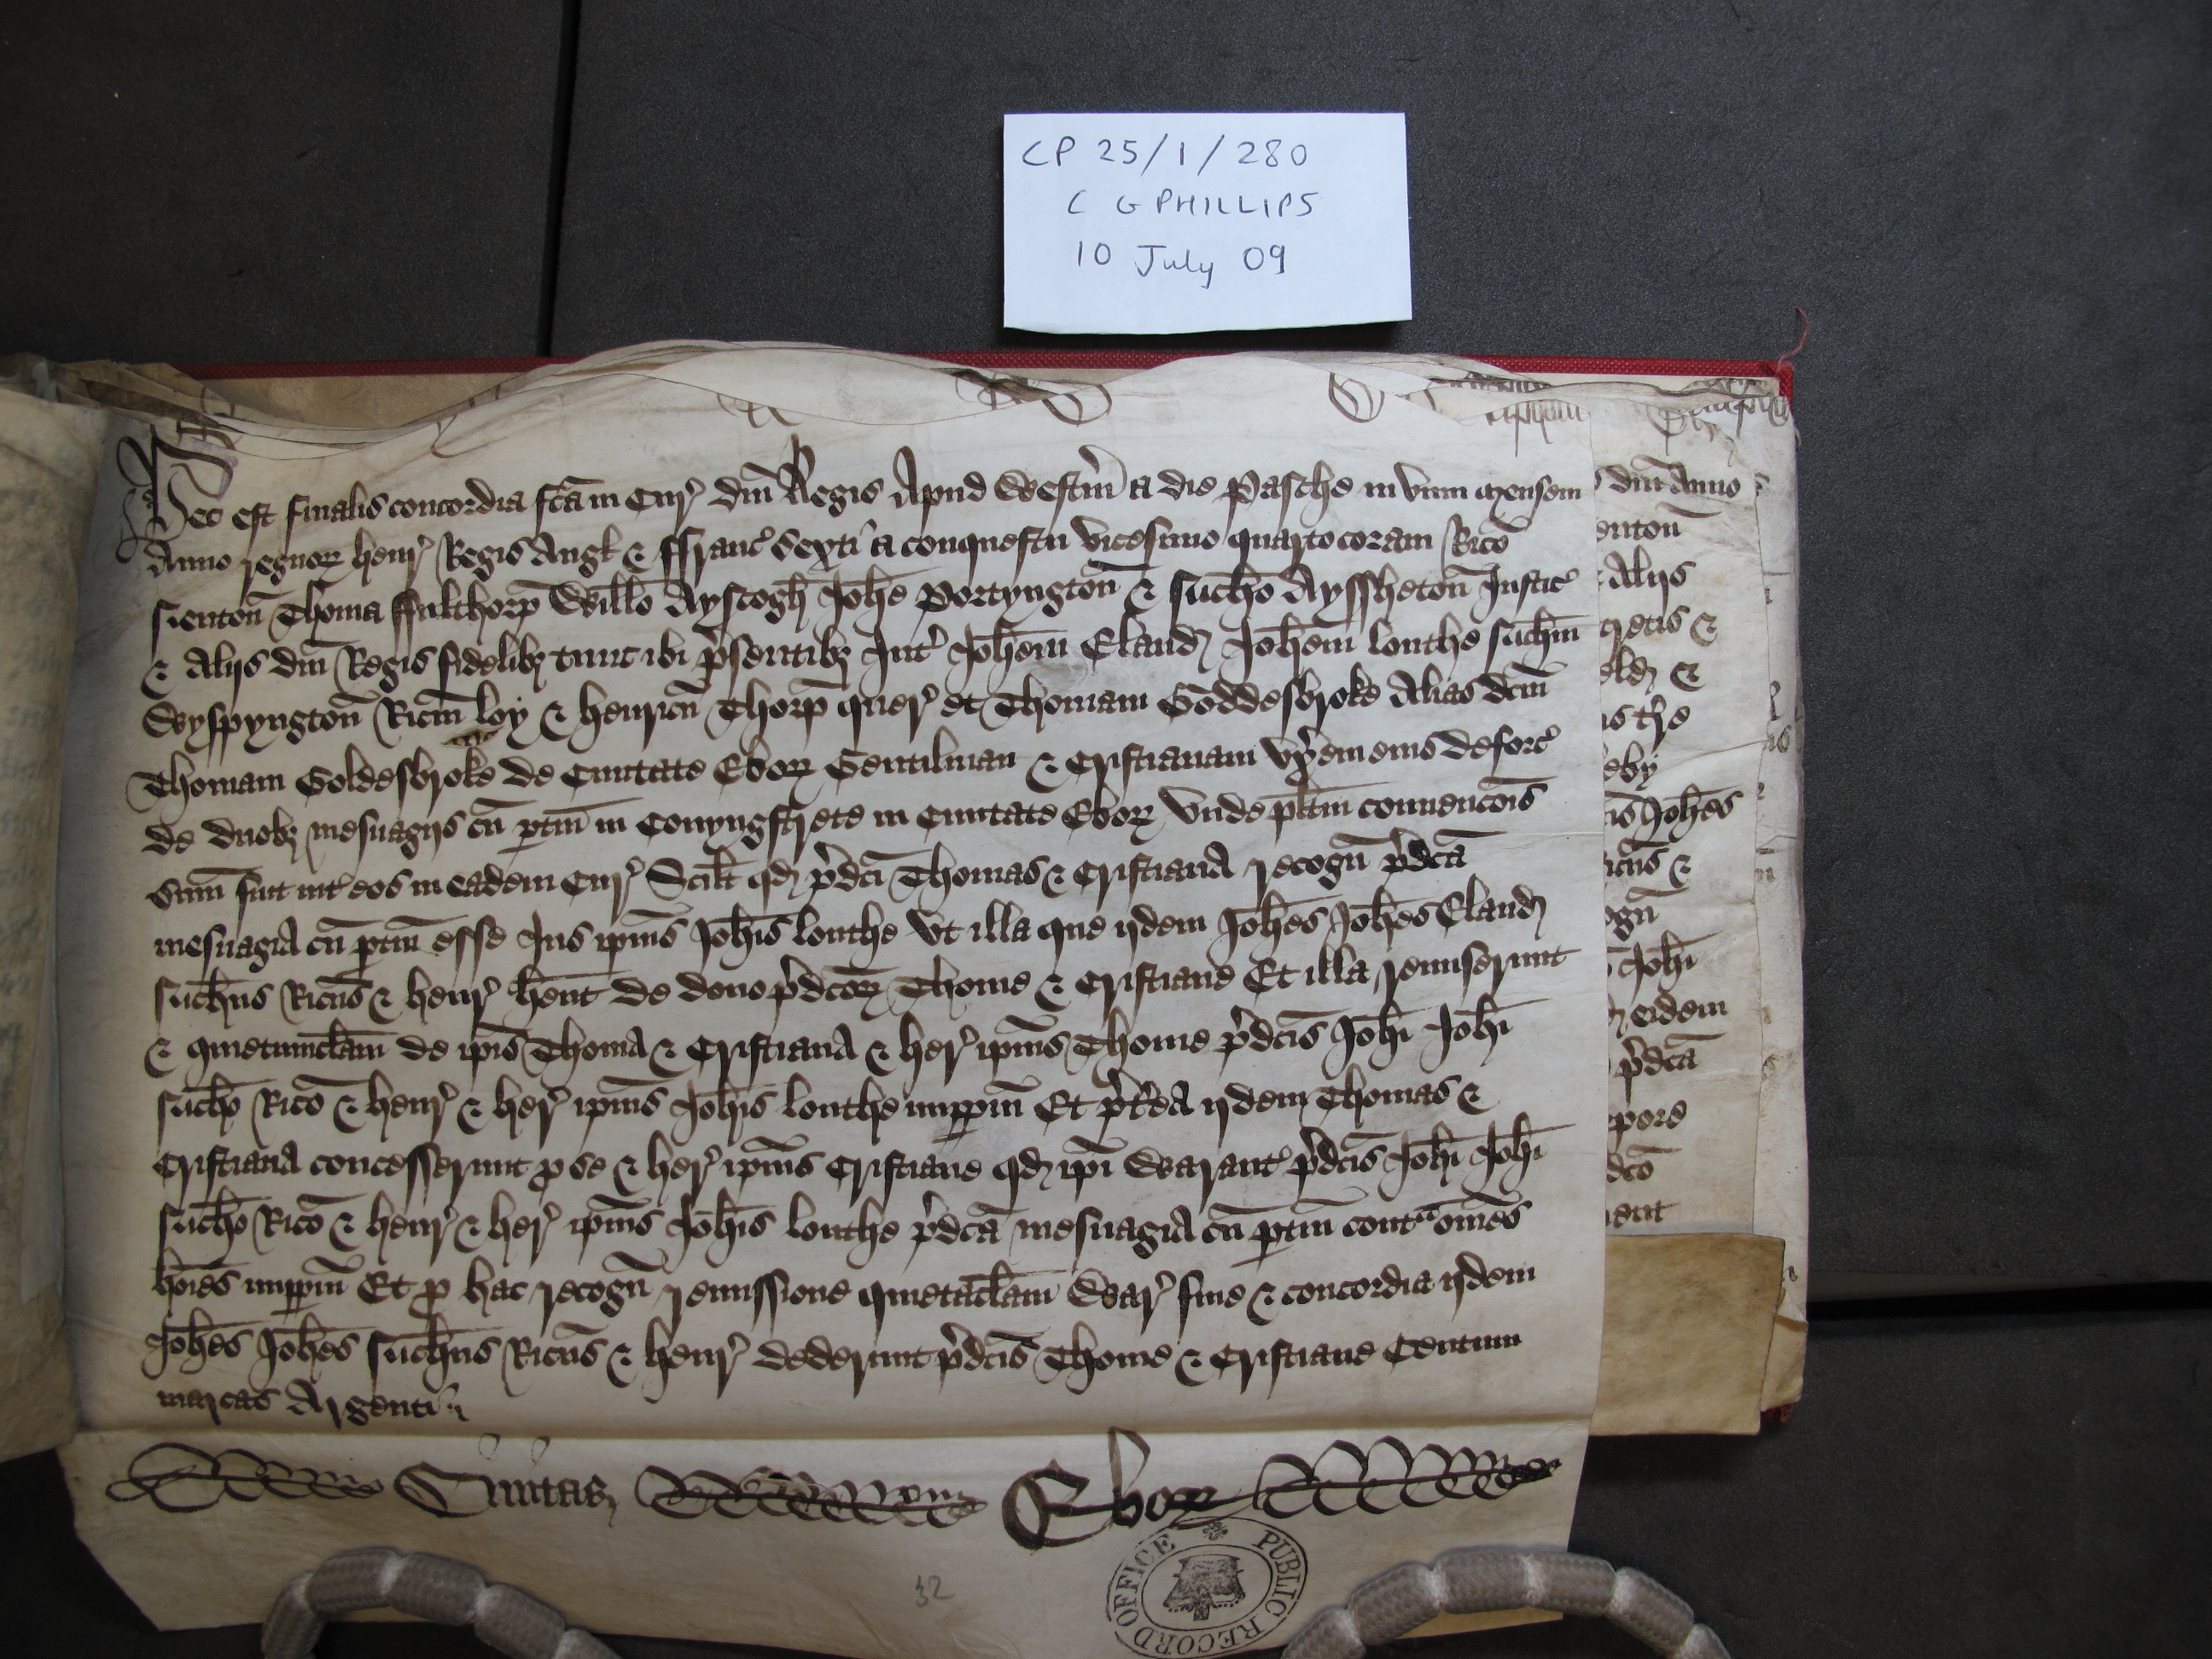 CP 25/1/280
C G PHILLIPS
10 July 09
Hec est finalis concordia fc̄a in Cur̉ dn̄i Regis Apud Westm̄ a die Pasche in vnum mensem
Anno regnoꝝ Henr̉ Regis Angł & Ffranc̉ sexti a conquestu vicesimo quarto coram Rico
Neuton̄ Thoma Ffulthorp̄ Willo Ayscogh̄ Joh̄e Portyngton̄ & Nich̄o Ayssheton̄ Justic̉
& Alijs dn̄i Regis fidelibȝ tunc ibi p̉sentibȝ Int̉ Joh̄em Eland Joh̄em louthe Nich̄m
Wyspyngton̄ Ricm̄ loy & Henricū Thorp̄ quer̉ et Thomam Goddesbroke Alias dc̄m
Thomam Goldesbroke de Ciuitate Eboꝝ Gentilman & Cristianam vx̉em eius deforc̉
de duobȝ mesuagijs cū ptin̄ in Conyngstrete in Ciuitate Eboꝝ Vnde plitm̄ conuenc̄ois
sum̄ fuit int̉ eos in eadem Cur̉ Scilt qd p̉dc̄i Thomas & Cristiana recogn̄ p̉dc̄a
mesuagia cū ptin̄ esse Jus ip̄ius Joh̄is louthe Vt illa que ijdem Joh̄es Joh̄es Eland
Nich̄us Ricūs & Henr̉ h̄ent de dono p̉dc̄oꝝ Thome & Cristiane Et illa remiserunt
& quietumclam̄ de ip̄is Thoma & Cristiana & her̉ ip̄ius Thome p̉dc̄is Joh̄i Joh̄i
Nich̄o Rico & Henr̉ & her̉ ip̄ius Joh̄is louthe imppm̄ Et p̉t̉ea ijdem Thomas &
Cristiana concesserunt ꝓ se & her̉ ip̄ius Cristiane qd ip̄i Warant̉ p̉dc̄is Joh̄i Joh̄i
Nich̄o Rico & Henr̉ & her̉ ip̄ius Joh̄is louthe p̉dc̄a mesuagia cū ptin̄ contᵃ om̄es
hōies imppm̄ Et ꝓ hac recogn̄ remissione quietaclam̄ War̉ fine & concordia ijdem
Joh̄es Joh̄es Nich̄us Ricūs & Henr̉ dederunt p̉dc̄is Thome & Cristiane Centum
marcas Argenti
Ciuitas Eboꝝ
32
PUBLIC RECORD OFFICE
dn̄i Anno
enton̄
Alijs
&
eld &
eby
Joh̄es
icūs &
ogn̄
Joh̄i
eidem
p̉dc̄a
pore
dc̄o